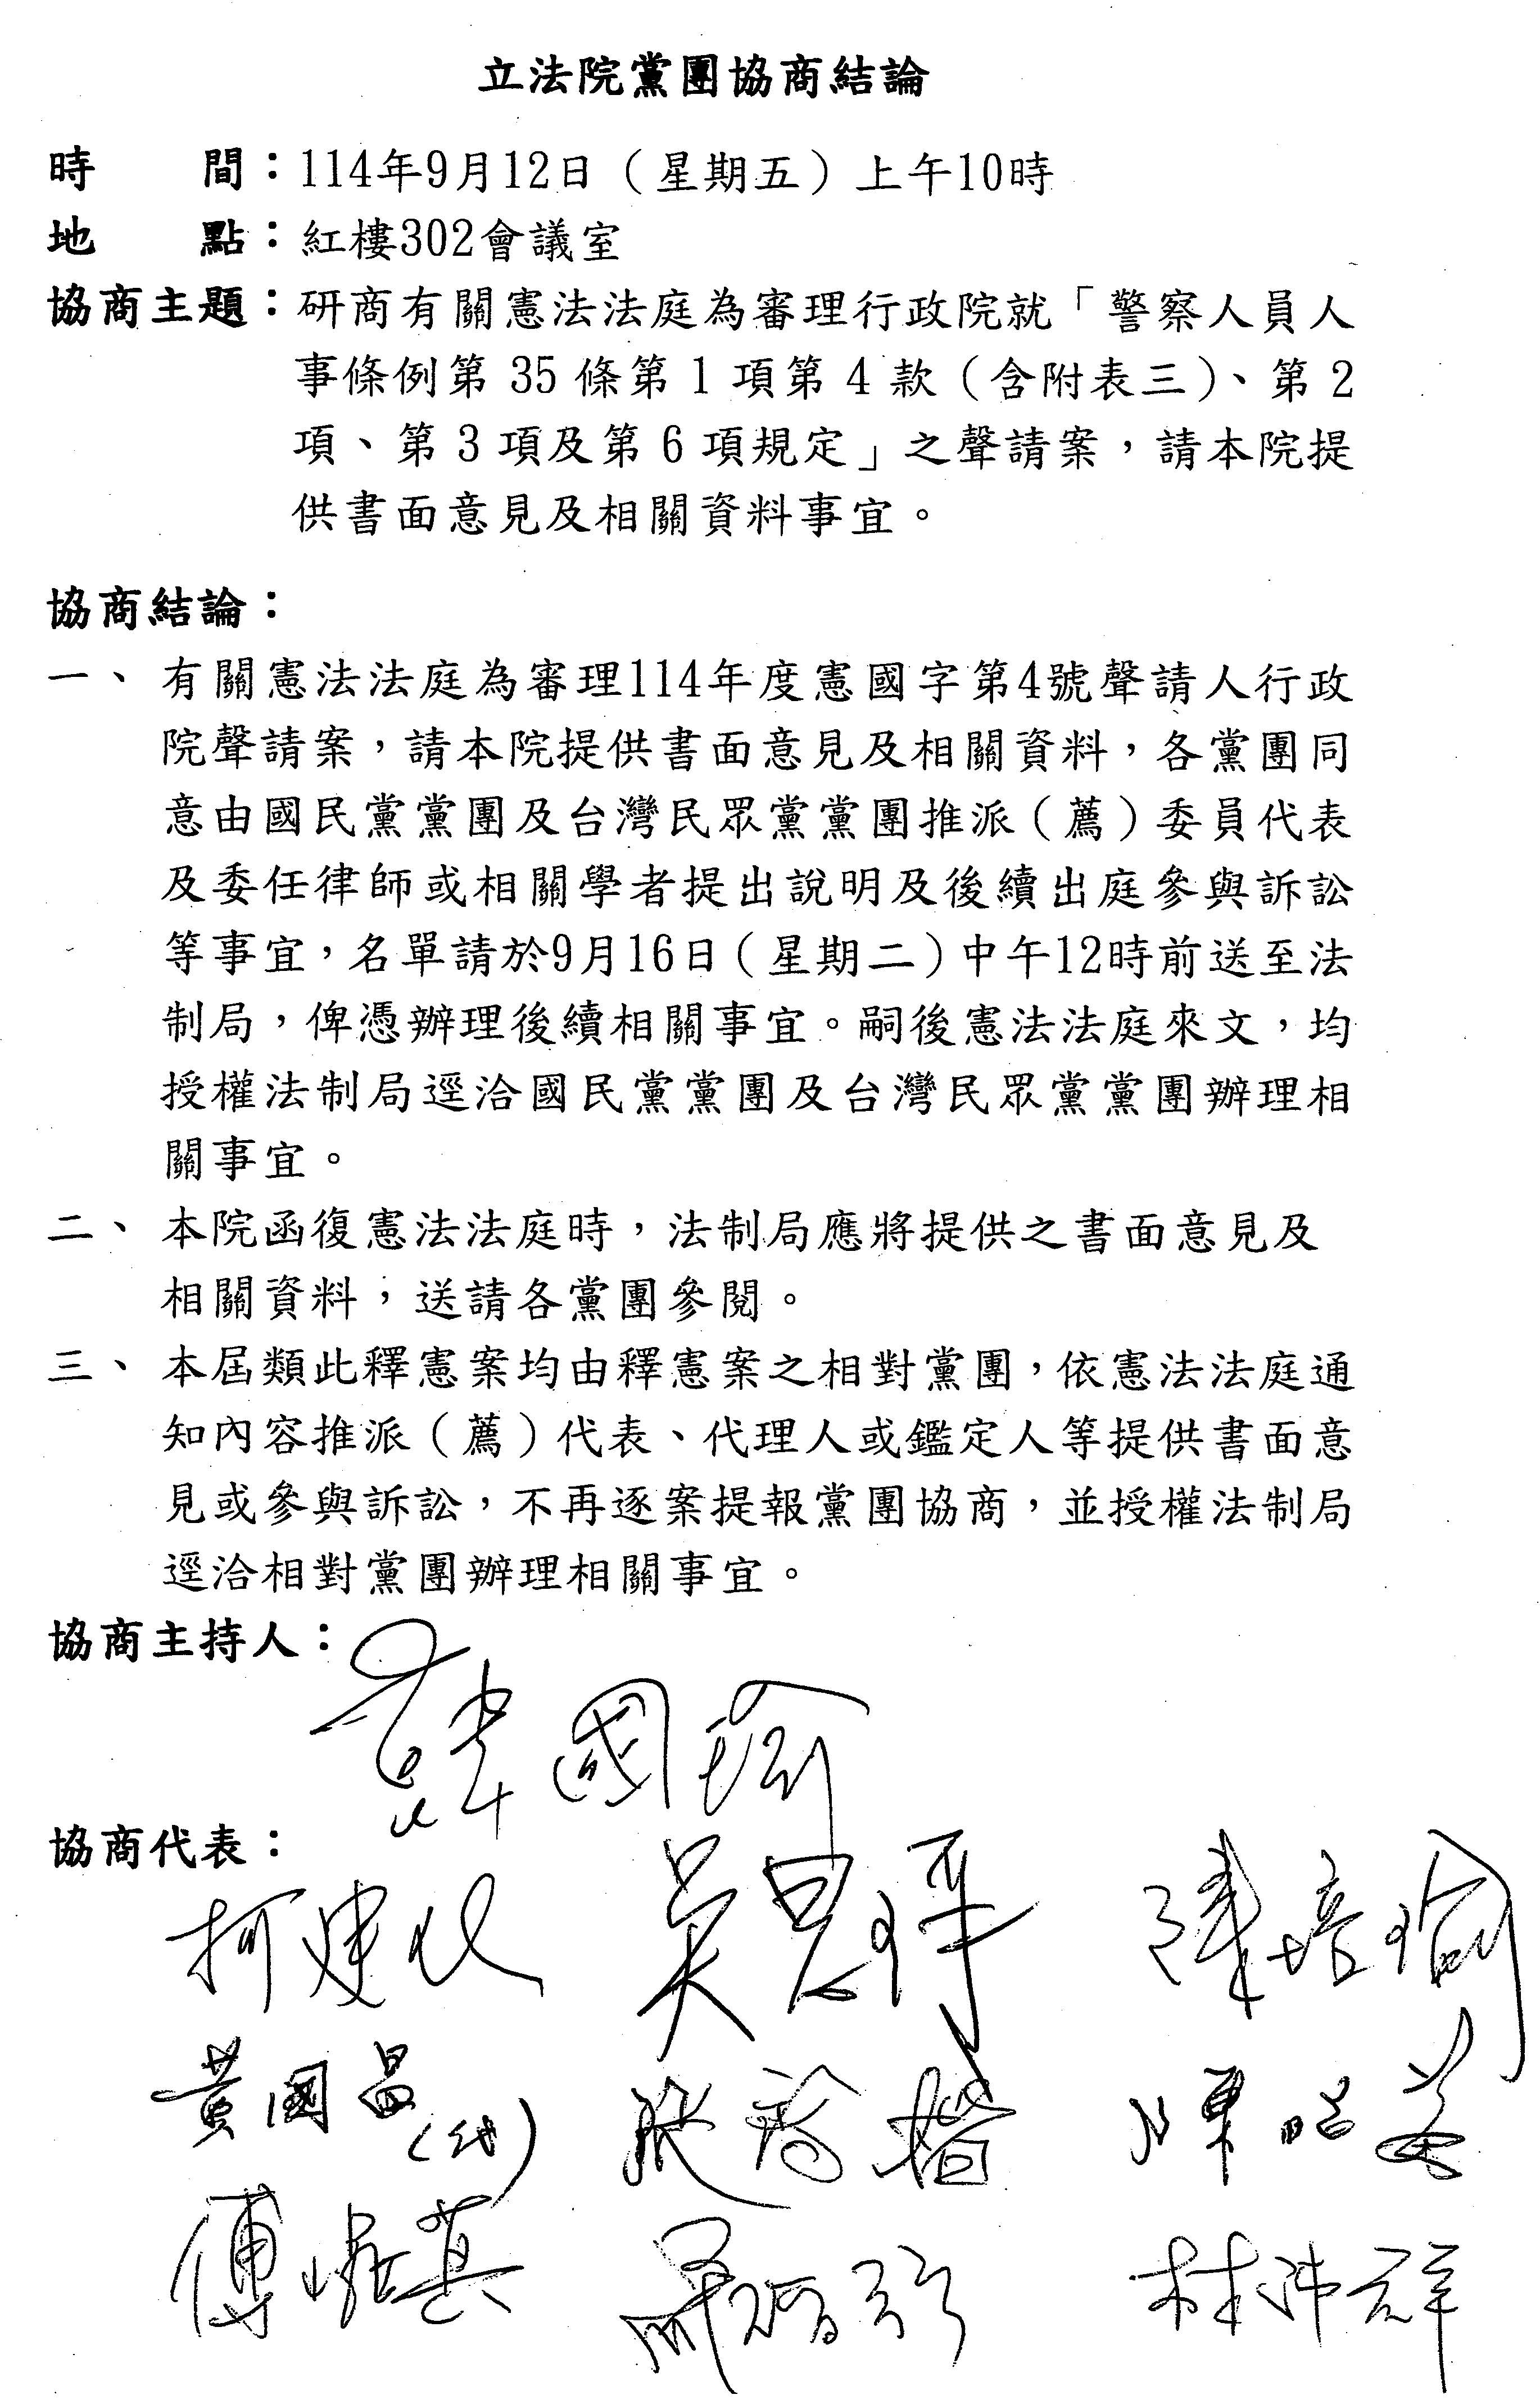 立法院黨團協商結論
時　　間：114年9月12日（星期五）上午10時
地　　點：紅樓302會議室
協商主題：研商有關憲法法庭為審理行政院就「警察人員人
事條例第 35 條第 1 項第 4 款（含附表三）、第 2
項、第 3 項及第 6 項規定」之聲請案，請本院提
供書面意見及相關資料事宜。
協商結論：
一、有關憲法法庭為審理114年度憲國字第4號聲請人行政
院聲請案，請本院提供書面意見及相關資料，各黨團同
意由國民黨黨團及台灣民眾黨黨團推派（薦）委員代表
及委任律師或相關學者提出說明及後續出庭參與訴訟
等事宜，名單請於9月16日（星期二）中午12時前送至法
制局，俾憑辦理後續相關事宜。嗣後憲法法庭來文，均
授權法制局逕洽國民黨黨團及台灣民眾黨黨團辦理相
關事宜。
二、本院函復憲法法庭時，法制局應將提供之書面意見及
相關資料，送請各黨團參閱。
三、本屆類此釋憲案均由釋憲案之相對黨團，依憲法法庭通
知內容推派（薦）代表、代理人或鑑定人等提供書面意
見或參與訴訟，不再逐案提報黨團協商，並授權法制局
逕洽相對黨團辦理相關事宜。
協商主持人：
韓國瑜
協商代表：
柯建銘 吳思瑤 陳培瑜
黃國昌（代） 張啓楷
傅崐萁 羅智強 林沛祥